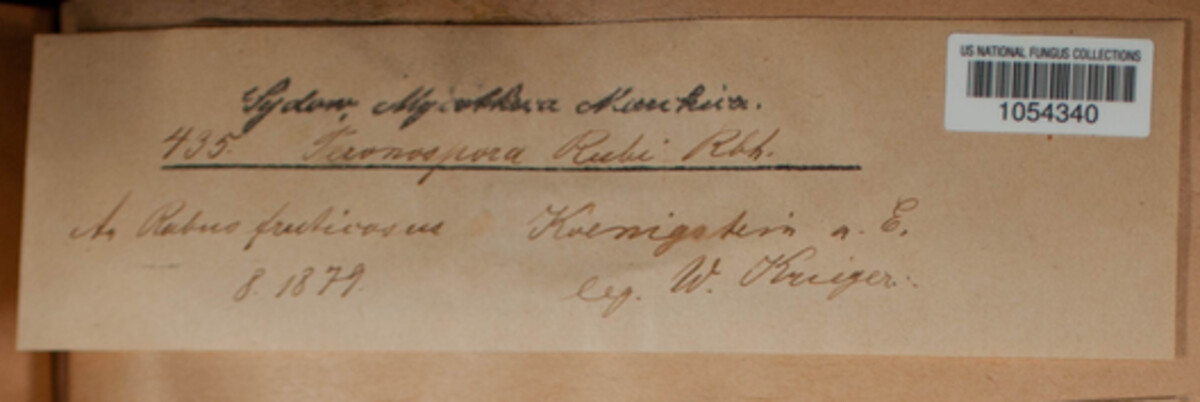 US NATIONAL FUNGUS COLLECTIONS
1054340
Sydow, Mycotheca Marchica.
435. Peronospora Rubi Rbh.
An Rubus fruticosus Koenigstein a. E.
8. 1879. leg. W. Krieger.